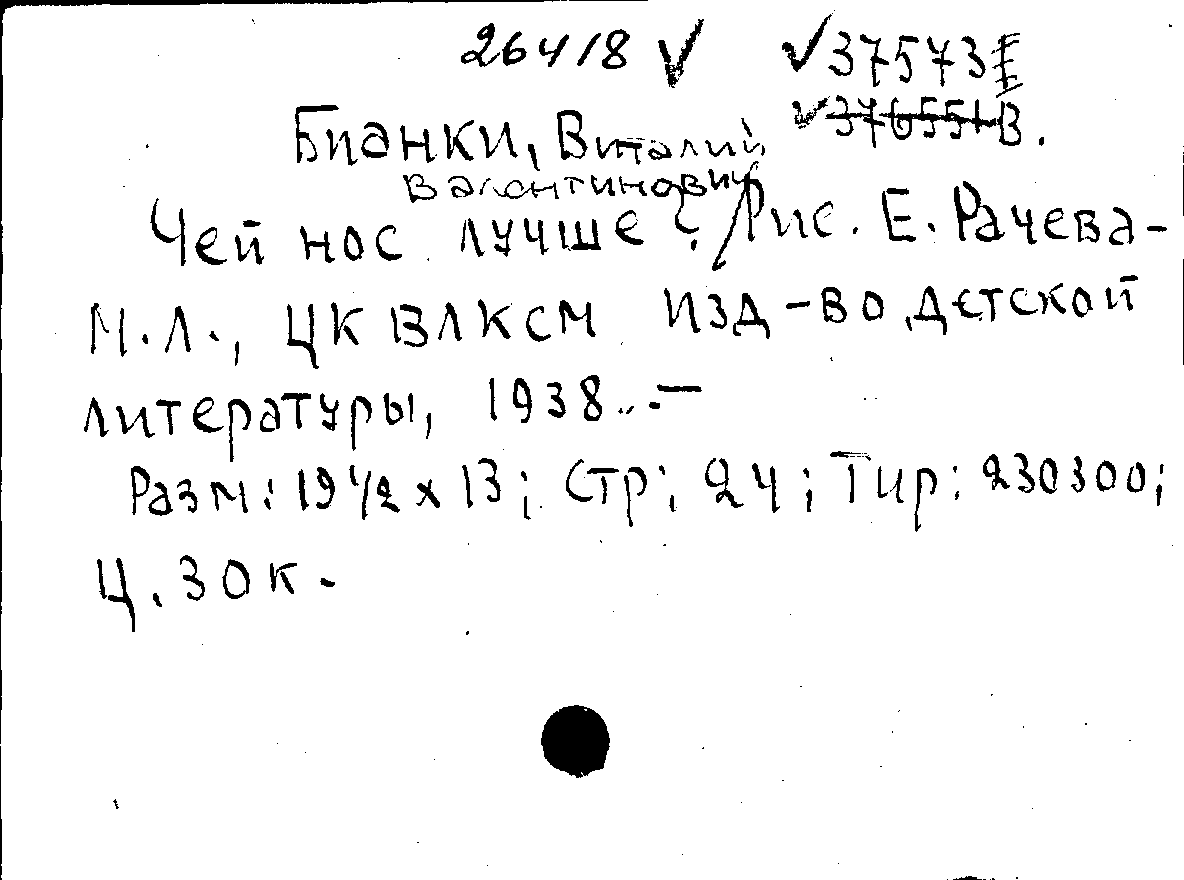 26418 V √37573
√376551В.
Бианки, Виталий
Валентинович
Чей нос лучше? / Рис. Е. Рачева-
М.Л., ЦК ВЛКСМ изд-во детской
литературы, 1938.-
Разм: 19 1/2 x 13; Стр: 24; Тир: 230300;
Ц. 30к.